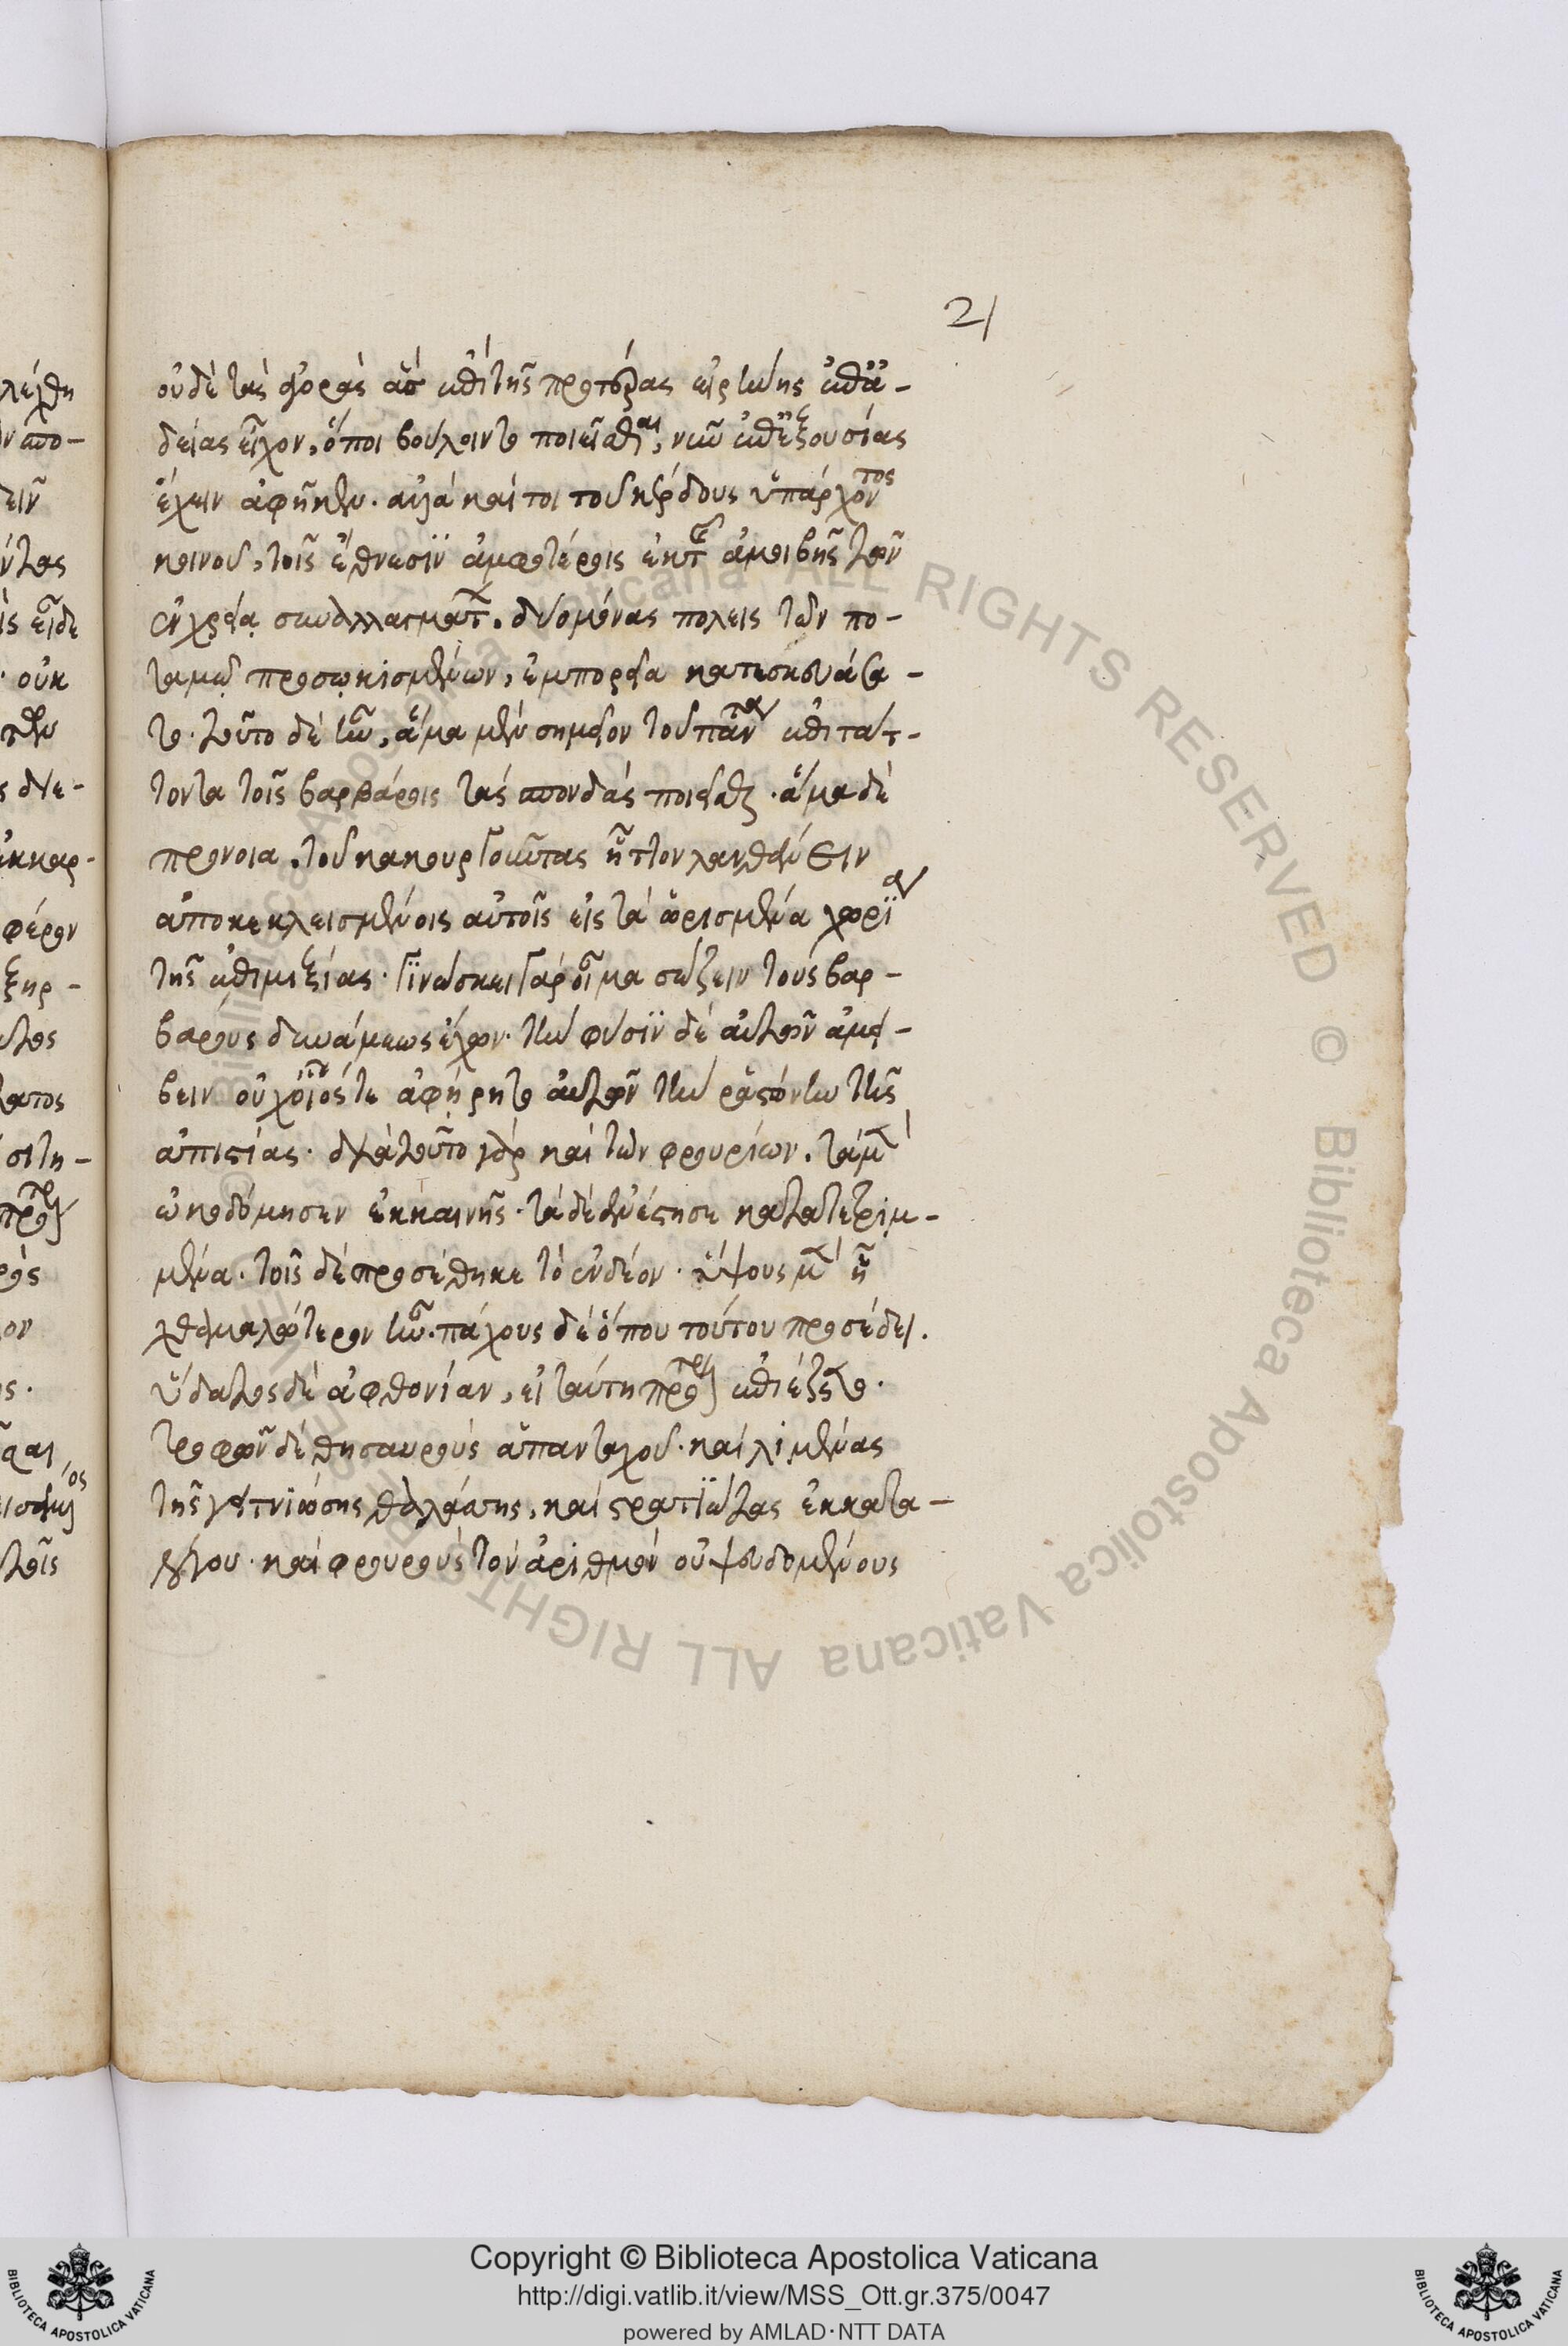 21
οὐδὲ τὰς ἀγορὰς ἃς ἐπὶ τῆς προτέρας εἰρήνης ἐπ' ἀ-
δείας εἶχον, ὅποι βούλοιντο ποιεῖσθαι, νῦν ἐπ' ἐξουσίας
ἔχειν ἀφῆκεν. ἀλλὰ καίτοι τοῦ κέρδους ὑπάρχοντος
κοινοῦ, τοῖς ἔθνεσϊν ἀμφοτέροις ἐκ τῆς ἀμοιβῆς τῶν
ἐν χρείᾳ συναλλαγμάτων. δύο μόνας πόλεις τῶν πο-
ταμῷ προσῳκισμένων, ἐμπορεῖα κατεσκευάσα-
το. τοῦτο δὲ ἦν, ἅμα μὲν σημεῖον τοῦ πάντα ἐπιτάτ-
τοντα τοῖς βαρβάροις τὰς σπονδὰς ποιεῖσθαι. ἅμα δὲ
πρόνοια. τοῦ κακουργοῦντας ἧττον λανθάνειν
ἀποκεκλεισμένοις αὐτοῖς εἰς τὰ ὡρισμένα χωρία
τῆς ἐπιμιξίας. γϊνώσκει γὰρ οἶμαι σώζειν τοὺς βαρ-
βάρους δυνάμεως ἔχων. τὴν φύσϊν δὲ αὐτῶν ἀμεί-
βειν οὐχ οἷός τε ἀφῄρητο αὐτῶν τὴν ῥᾳστώνην τῆς
ἀπιστίας. διὰ τοῦτο γὰρ καὶ τῶν φρουρίων. τὰ μὲν
ᾠκοδόμησεν ἐκ καινῆς. τὰ δὲ ἀνέστησε κατατετριμ-
μένα. τοῖς δὲ προσέθηκε τὸ ἐνδέον. ὕψους μὲν ᾗ
χθαμαλώτερον ἦν. πάχους δὲ ὅπου τούτου προσέδει.
ὕδατος δὲ ἀφθονίαν, εἰ ταύτῃ πρότερον ἐπιέζετο.
τροφῶν δὲ θησαυροὺς ἁπανταχοῦ. καὶ λιμένας
τῆς γειτνϊώσης θαλάσσης, καὶ στρατϊώτας ἐκ κατα-
λόγου. καὶ φρουροὺς τὸν ἀριθμὸν οὐ ψευδομένους
Copyright © Biblioteca Apostolica Vaticana
http://digi.vatlib.it/view/MSS_Ott.gr.375/0047
powered by AMLAD·NTT DATA